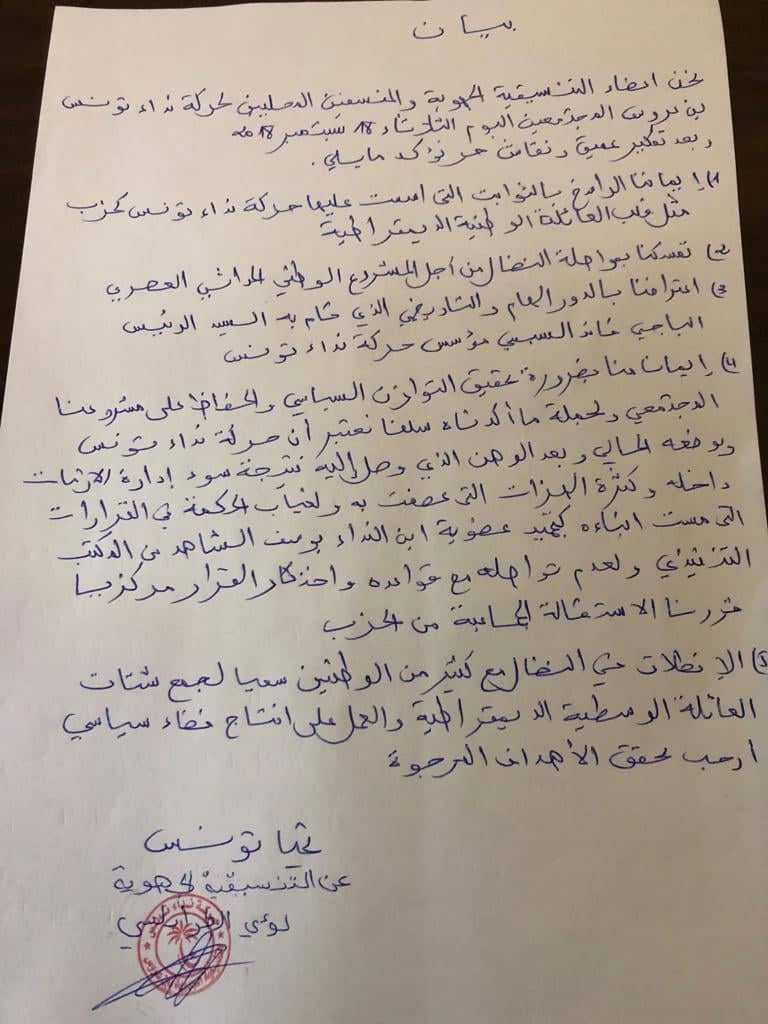 بيان
نحن اعضاء التنسيقية الجهوية والمنسقين المحليين لحركة نداء تونس
ببن عروس المجتمعين اليوم الثلاثاء 18 سبتمبر 2018
وبعد تفكير عميق ونقاش حر نؤكد مايلي.
1) إيماننا الراسخ بالثوابت التي اسست عليها حركة نداء تونس كحزب
مثل قلب العائلة الوطنية الديمقراطية
2) تمسكنا بمواصلة النضال من أجل المشروع الوطني الحداثي العصري
3) اعترافنا بالدور الهام والتاريخي الذي قام به السيد الرئيس
الباجي قائد السبسي مؤسس حركة نداء تونس
4) إيمانا منا بضرورة تحقيق التوازن السياسي والحفاظ على مشروعنا
المجتمعي ولجملة ما أكدناه سلفا نعتبر أن حركة نداء تونس
وبوضعه الحالي وبعد الوهن الذي وصل إليه نتيجة سوء إدارة الازمات
داخله وكثرة الهزات التي عصفت به ولغياب الحكمة في القرارات
التي مست ابناءه كتجميد عضوية ابن النداء يوسف الشاهد من المكتب
التنفيذي ولعدم تواصله مع قواعده واحتكار القرار مركزيا
قررنا الاستقالة الجماعية من الحزب
5) الانطلاق في النضال مع كثير من الوطنين سعيا لجمع شتات
العائلة الوسطية الديمقراطية والعمل على انتاج فضاء سياسي
ارحب يحقق الأهداف المرجوة
تحيا تونس
عن التنسيقية الجهوية
لؤي